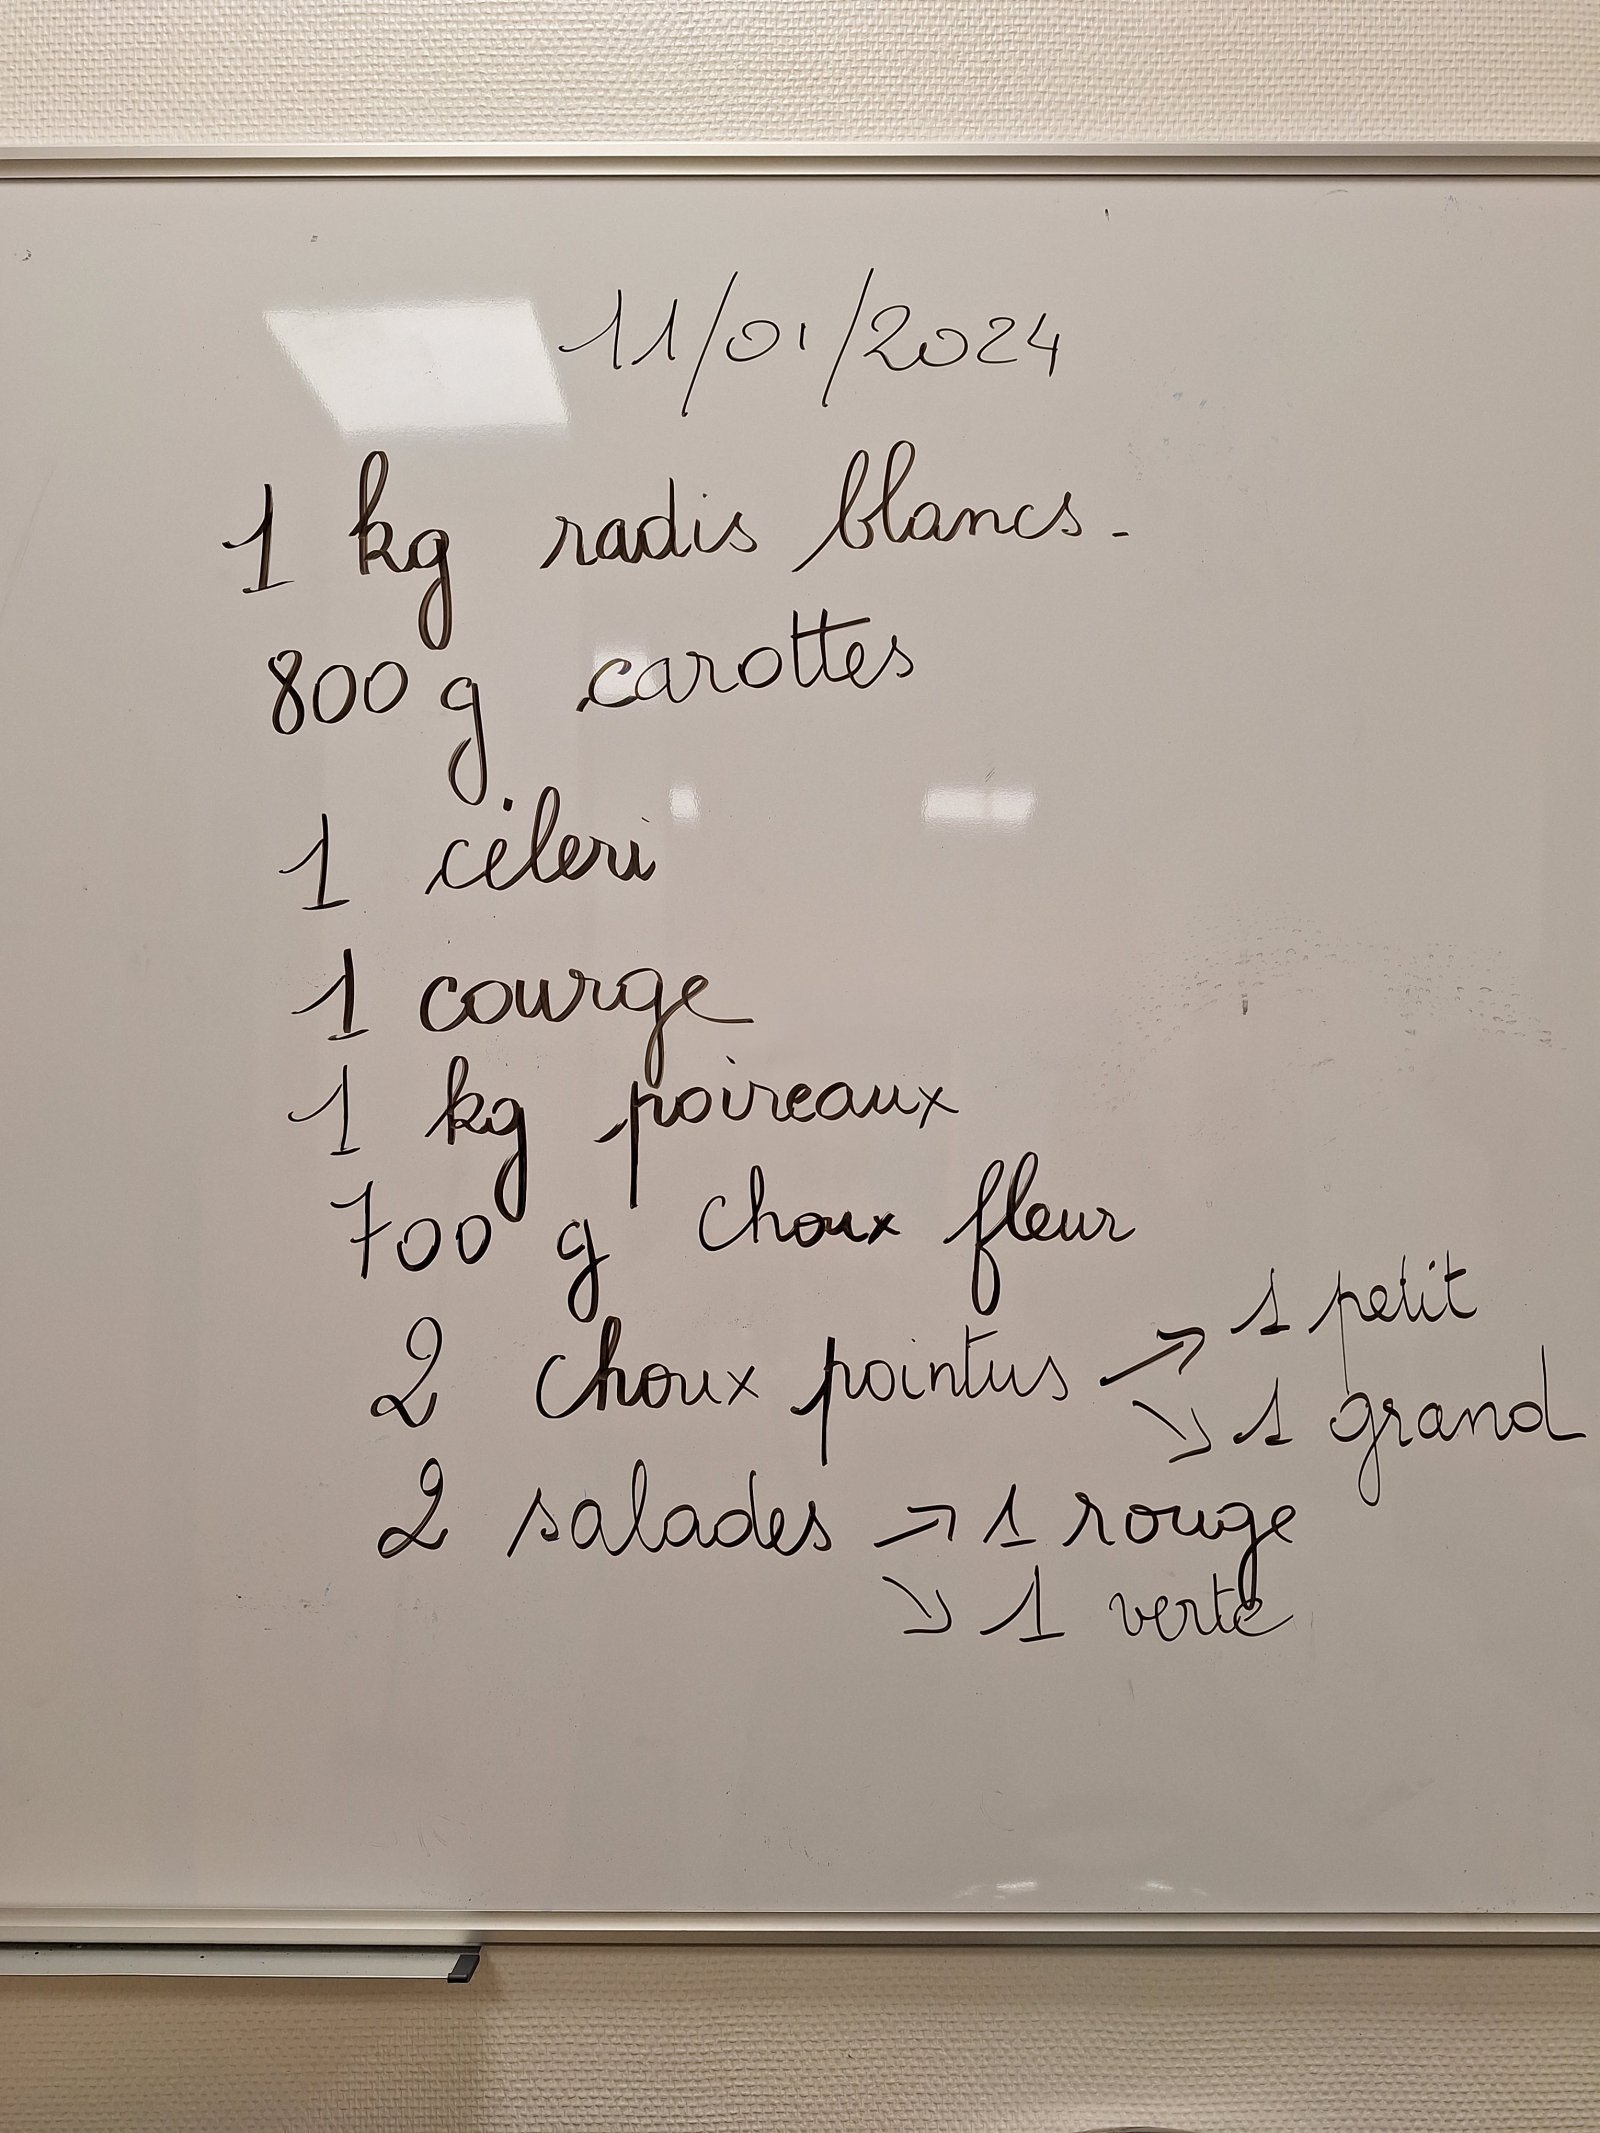 11/01/2024
1 kg radis blancs.
800 g carottes
1 céleri
1 courge
1 kg poireaux
700 g choux fleur
2 choux pointus → 1 petit
↘ 1 grand
2 salades → 1 rouge
↘ 1 verte